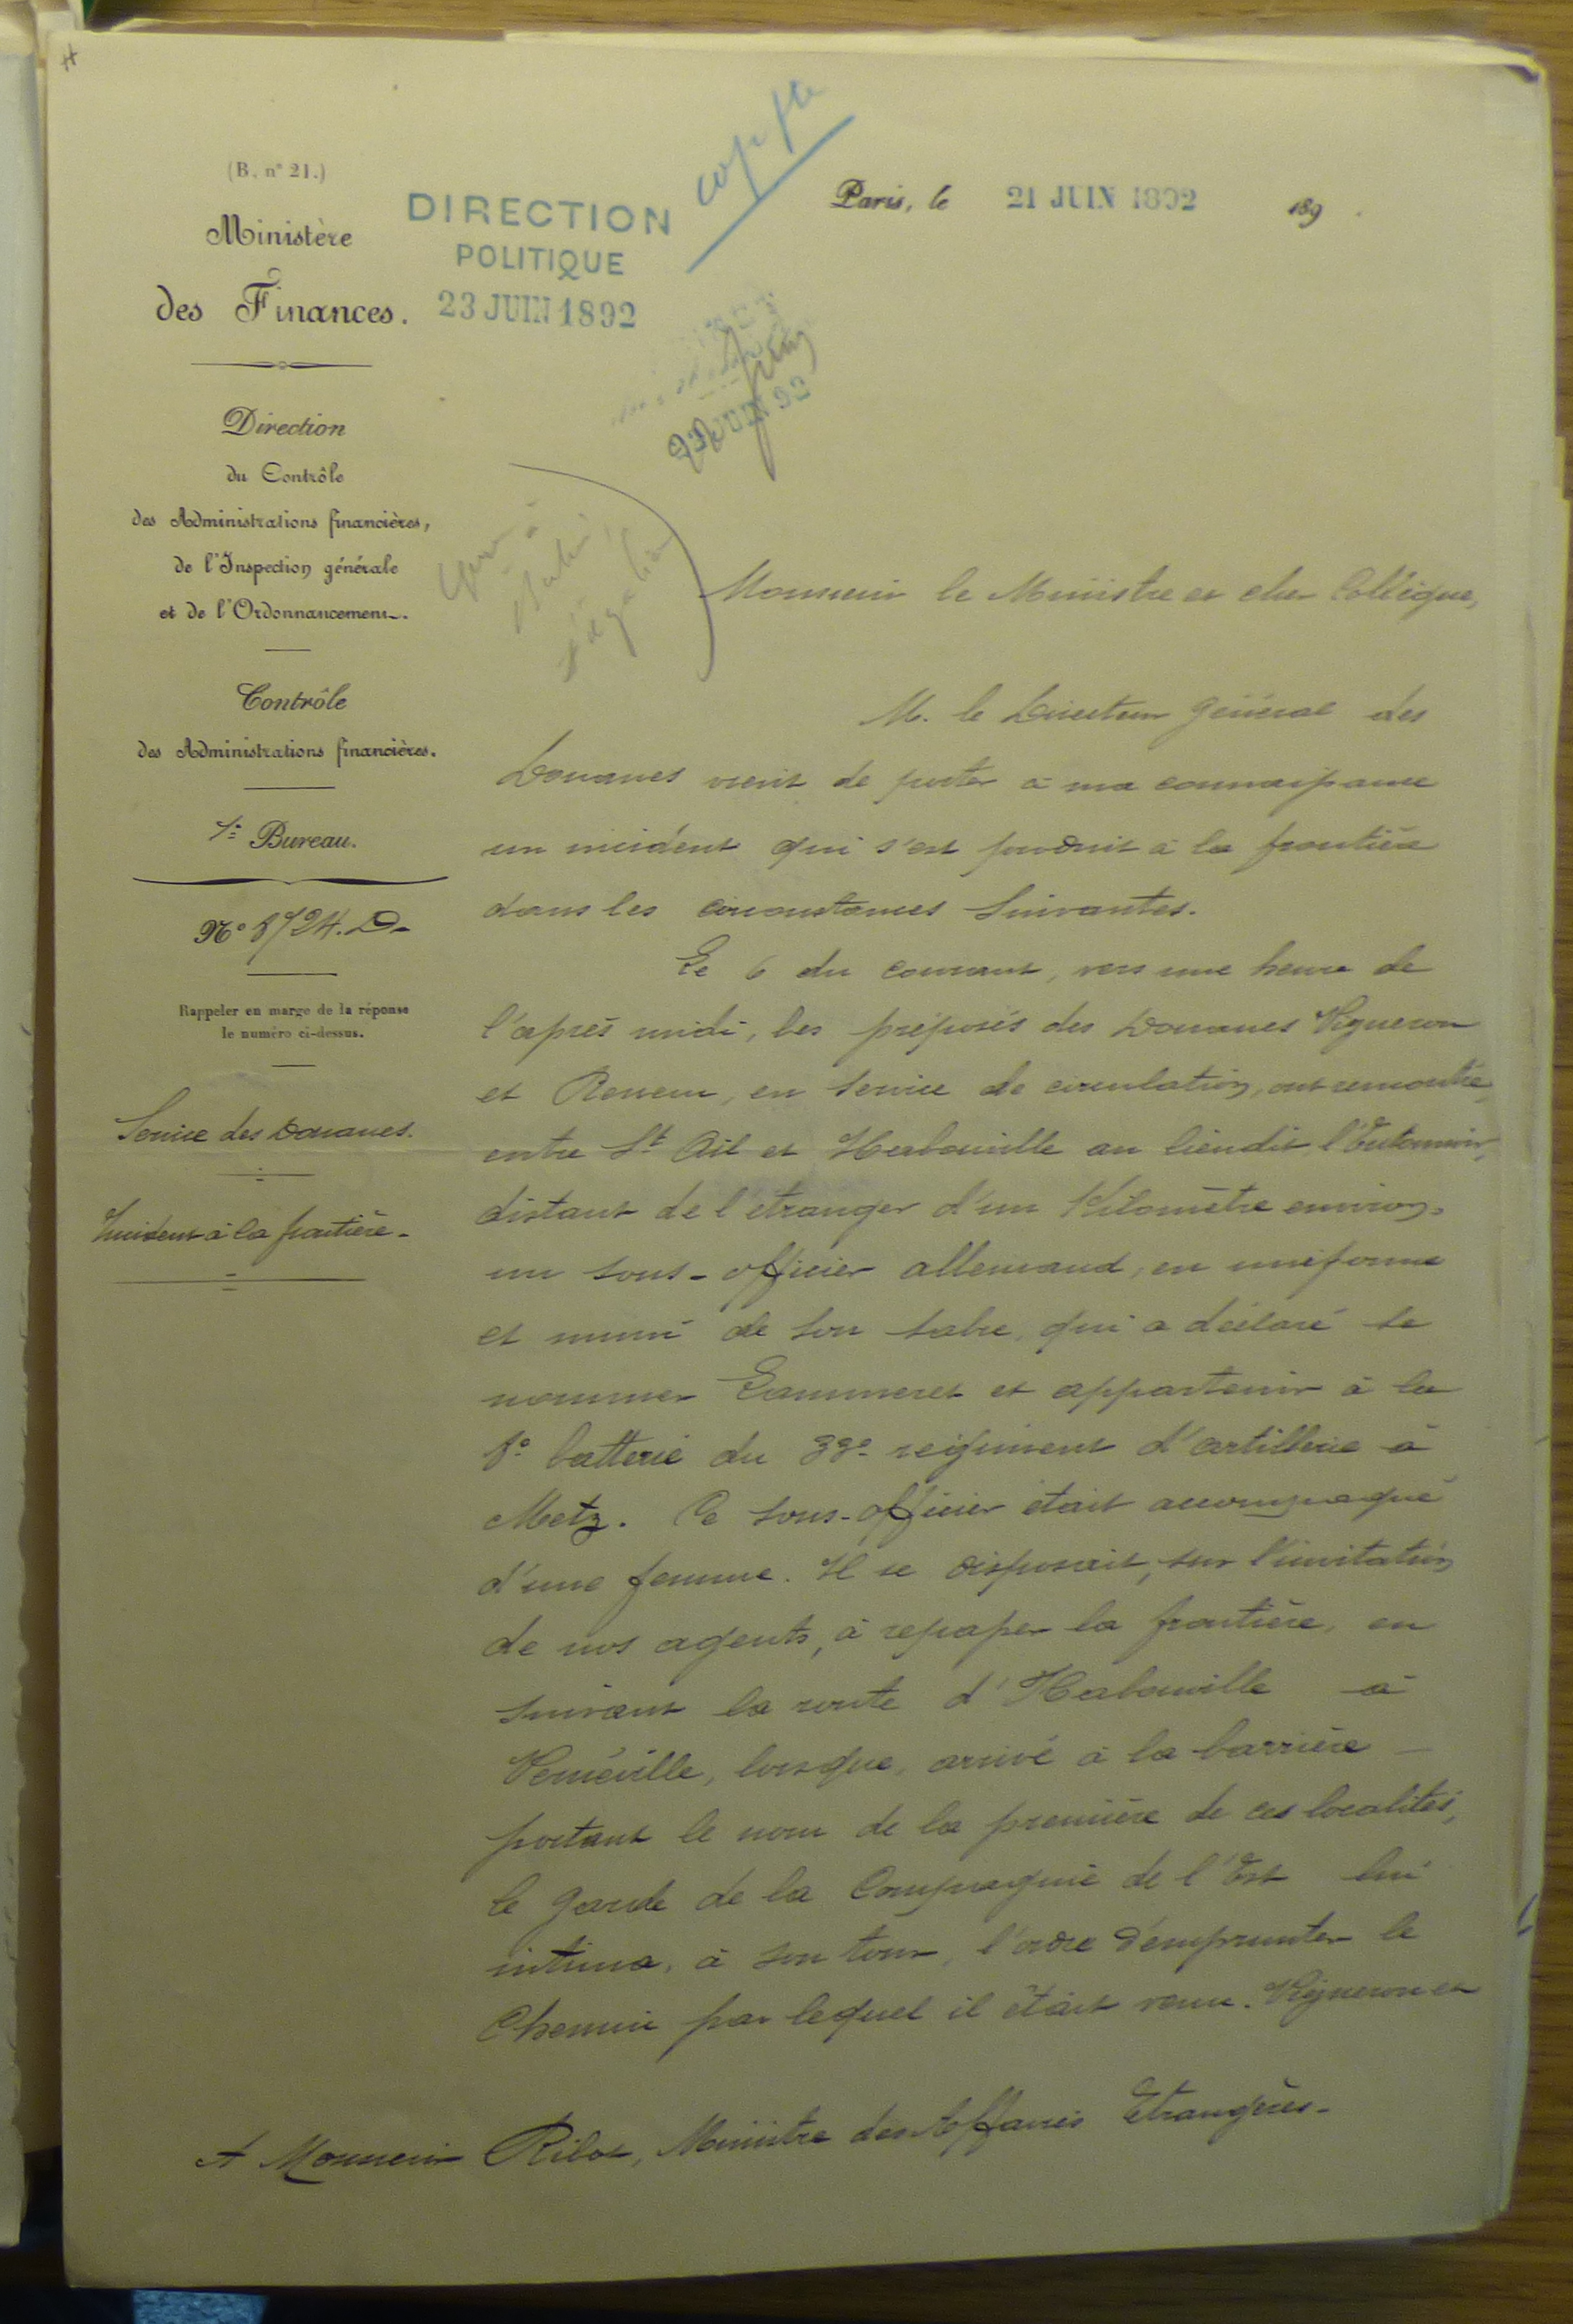 (B. n° 21.)
Ministère
des Finances.
DIRECTION
POLITIQUE
23 JUIN 1892
copie
Paris, le 21 JUIN 1892 189
Direction
du Contrôle
des Administrations financières,
de l'Inspection générale
et de l'Ordonnancement.
Contrôle
des Administrations financières.
Bureau.
N°
Rappeler en marge de la réponse
le numéro ci-dessus.
Service des Douanes.
Incident à la frontière.
Monsieur le Ministre et cher Collègue,
M. le Directeur Général des
Douanes vient de porter à ma connaissance
un incident qui s'est produit à la frontière
dans les circonstances suivantes.
Le 6 du courant, vers une heure de
l'après midi, les préposés des Douanes Vigneron
et en service de circulation, ont rencontré,
entre St Ail et Habonville au lieudit
distant de l'etranger d'un Kilomètre environ,
un sous-officier allemand, en uniforme
et muni de son sabre, qui a déclaré se
nommer et appartenir à la
batterie du 33e regiment d'artillerie à
Metz. Ce sous-officier était accompagné
d'une femme. Il se disposait, sur l'invitation
de nos agents, à repasser la frontière, en
suivant la route d'Habonville à
Vernéville, lorsque, arrivé à la barrière
portant le nom de la première de ces localités,
le garde de la Compagnie de l'Est lui
intima, à son tour, l'ordre d'emprunter le
Chemin par lequel il était venu. Vigneron et
A Monsieur Ribot, Ministre des Affaires Etrangères.